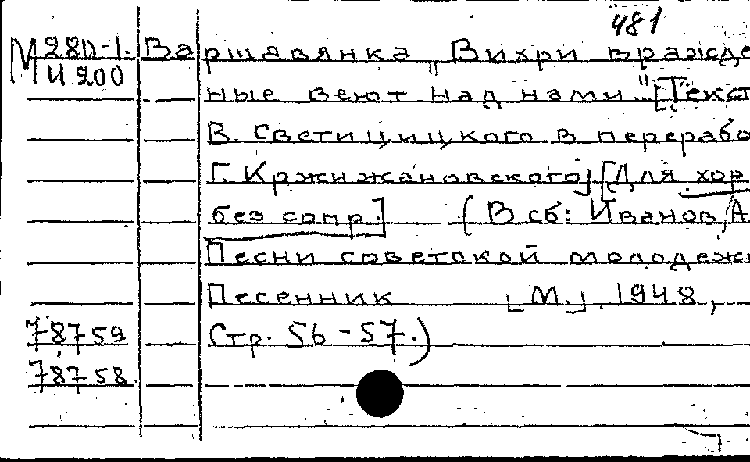 481
М 28П-1. Варшавянка „Вихри враждеб
И 200
ные веют над нами" [Текст
В. Светицицкого в перерабо
Г. Кржижановского] [Для хор
без сопр.] (В сб: Иванов, А
Песни советской молодежи
Песенник [М.], 1948,
78759 Стр. 56-57.)
78758.